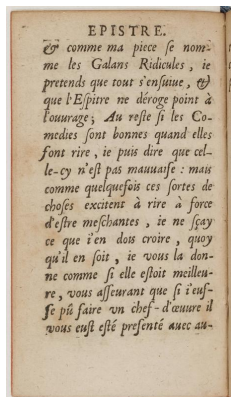 EPISTRE.
& comme ma piece ſe nom-
me les Galans Ridicules, ie
pretends que tout s'enſuiue, &
que l'Eſpitre ne déroge point à
l'ouurage; Au reſte ſi les Co-
medies ſont bonnes quand elles
font rire, ie puis dire que cel-
le-cy n'eſt pas mauuaiſe: mais
comme quelquefois ces ſortes de
choſes excitent à rire à force
d'eſtre meſchantes, ie ne ſçay
ce que i'en dois croire, quoy
qu'il en ſoit, ie vous la don-
ne comme ſi elle eſtoit meilleu-
re, vous aſſeurant que ſi i'euſ-
ſe pû faire vn chef-d'œuure il
vous euſt eſté preſenté auec au-